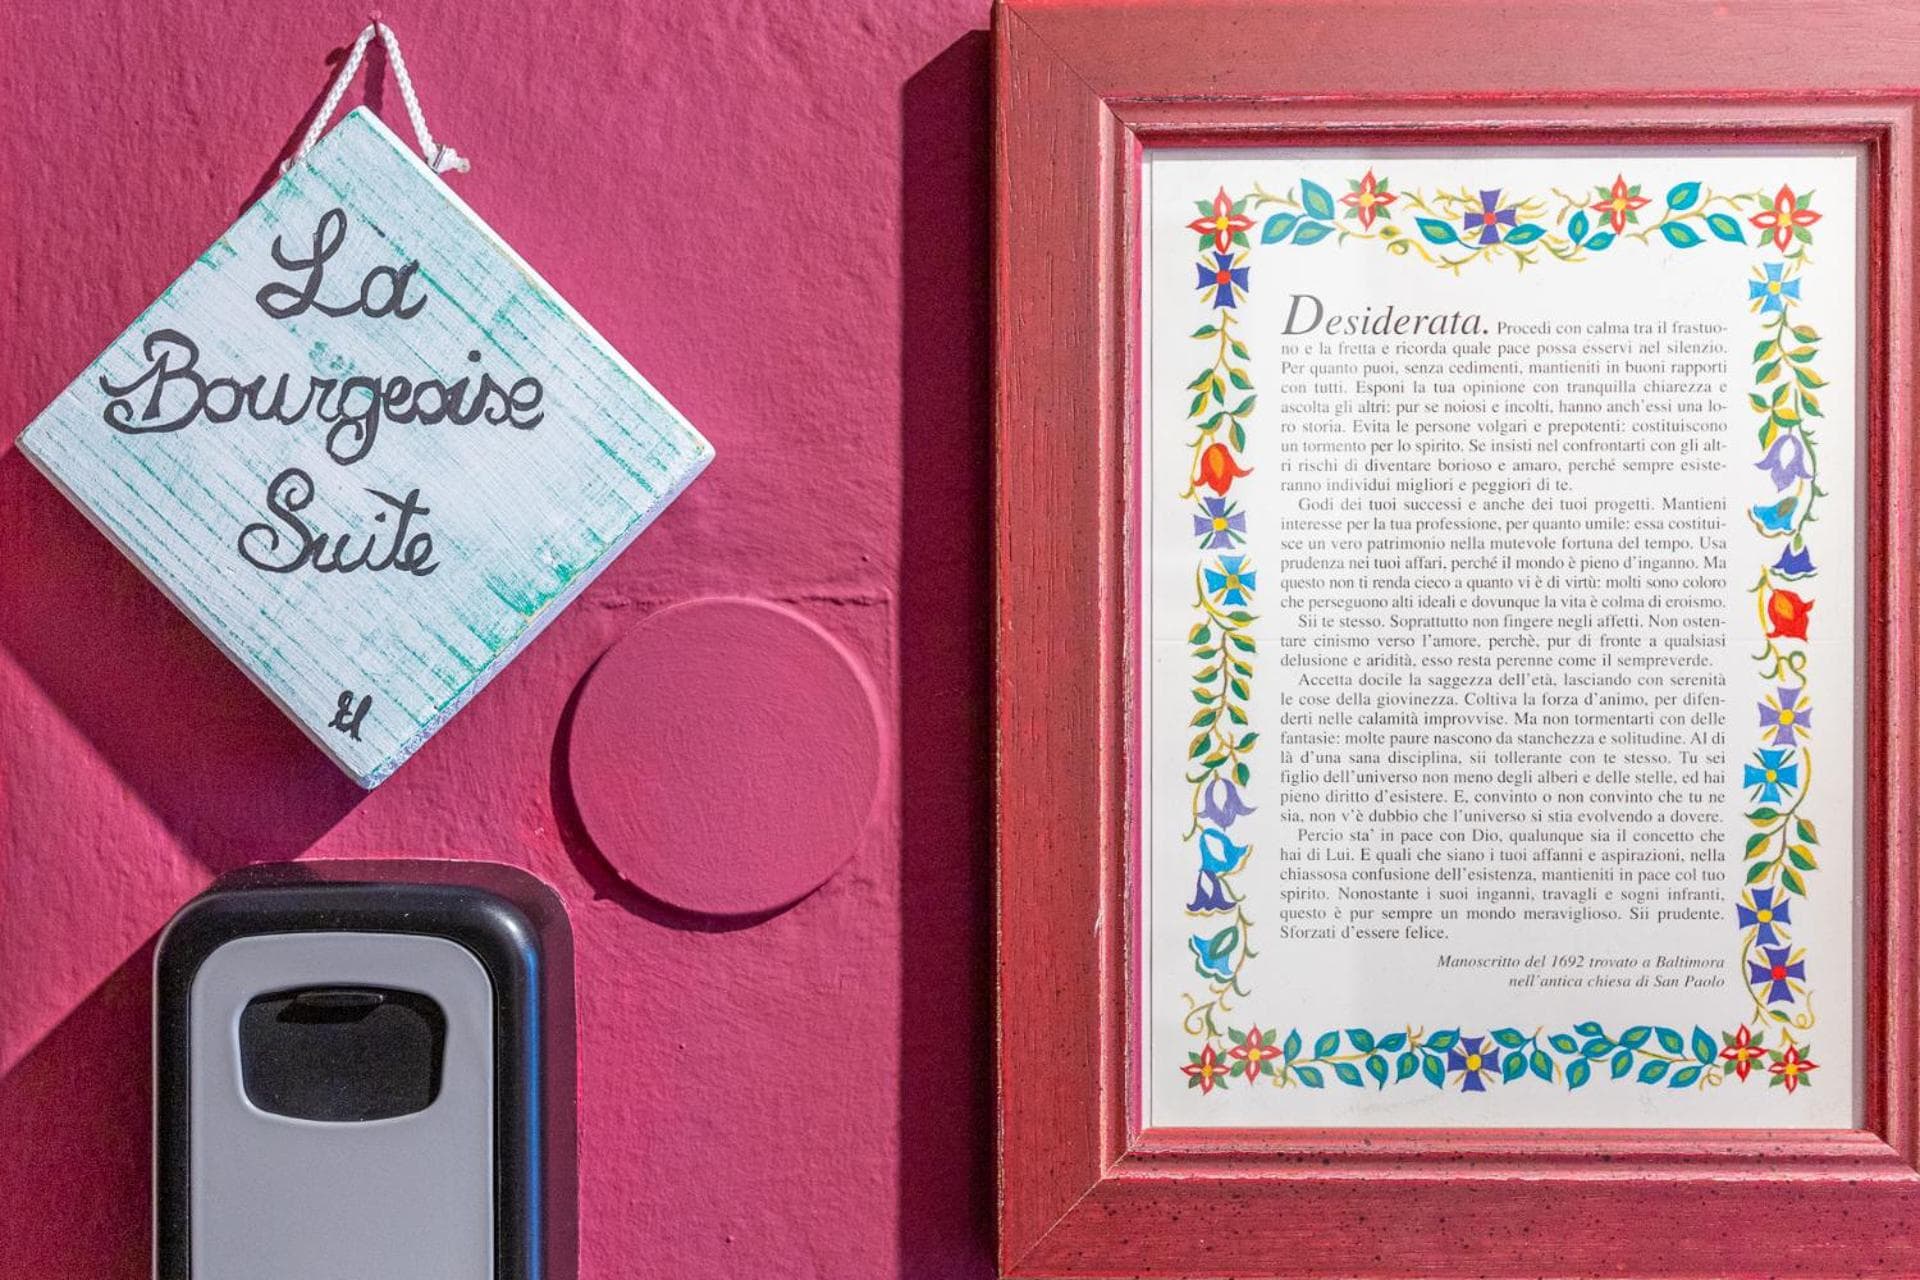 La
Bourgeoise
Suite
Desiderata. Procedi con calma tra il frastuo-
no e la fretta e ricorda quale pace possa esservi nel silenzio.
Per quanto puoi, senza cedimenti, mantieniti in buoni rapporti
con tutti. Esponi la tua opinione con tranquilla chiarezza e
ascolta gli altri: pur se noiosi e incolti, hanno anch'essi una lo-
ro storia. Evita le persone volgari e prepotenti: costituiscono
un tormento per lo spirito. Se insisti nel confrontarti con gli alt-
ri rischi di diventare borioso e amaro, perché sempre esiste-
ranno individui migliori e peggiori di te.
Godi dei tuoi successi e anche dei tuoi progetti. Mantieni
interesse per la tua professione, per quanto umile: essa costitui-
sce un vero patrimonio nella mutevole fortuna del tempo. Usa
prudenza nei tuoi affari, perché il mondo è pieno d'inganno. Ma
questo non ti renda cieco a quanto vi è di virtù: molti sono coloro
che perseguono alti ideali e dovunque la vita è colma di eroismo.
Sii te stesso. Soprattutto non fingere negli affetti. Non osten-
tare cinismo verso l'amore, perchè, pur di fronte a qualsiasi
delusione e aridità, esso resta perenne come il sempreverde.
Accetta docile la saggezza dell'età, lasciando con serenità
le cose della giovinezza. Coltiva la forza d'animo, per difen-
derti nelle calamità improvvise. Ma non tormentarti con delle
fantasie: molte paure nascono da stanchezza e solitudine. Al di
là d'una sana disciplina, sii tollerante con te stesso. Tu sei
figlio dell'universo non meno degli alberi e delle stelle, ed hai
pieno diritto d'esistere. E, convinto o non convinto che tu ne
sia, non v'è dubbio che l'universo si stia evolvendo a dovere.
Percio sta' in pace con Dio, qualunque sia il concetto che
hai di Lui. E quali che siano i tuoi affanni e aspirazioni, nella
chiassosa confusione dell'esistenza, mantieniti in pace col tuo
spirito. Nonostante i suoi inganni, travagli e sogni infranti,
questo è pur sempre un mondo meraviglioso. Sii prudente.
Sforzati d'essere felice.
Manoscritto del 1692 trovato a Baltimora
nell'antica chiesa di San Paolo